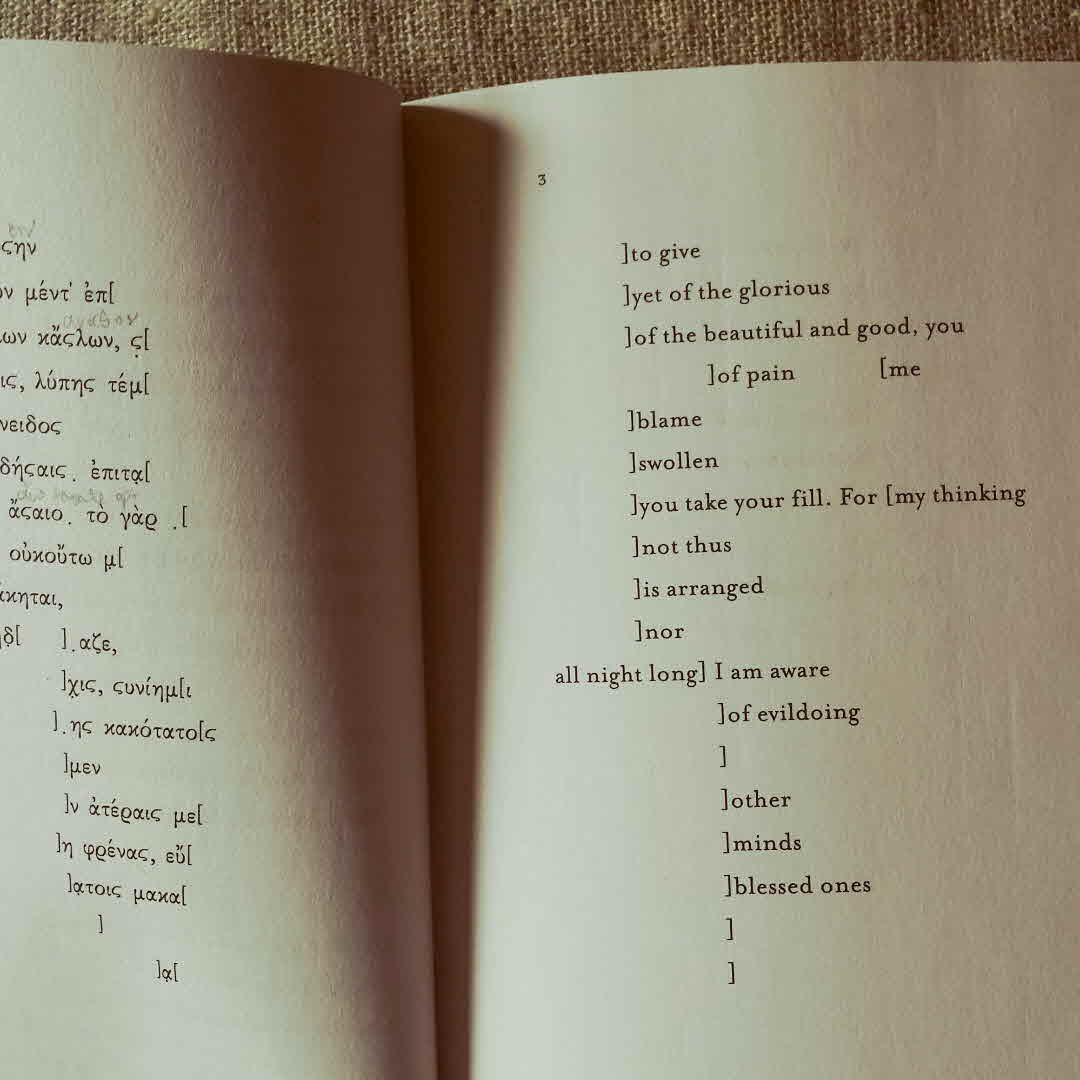 ςην
ν μέντ' ἐπ[
ων κἄςλων, ς̣[
ις, λύπης τέμ[
νειδος
δήςαις . ἐπιτα̣[
ἄςαιο . τὸ γὰρ .[
οὐκοὔτω μ̣[
κηται,
δ[ ] .αζε,
]χις, ςυνίημ[ι
] .ης κακότατο[ς
]μεν
]ν ἀτέραις με[
]η φρένας, εὔ[
]α̣τοις μακα[
]
]α̣[
3
]to give
]yet of the glorious
]of the beautiful and good, you
]of pain [me
]blame
]swollen
]you take your fill. For [my thinking
]not thus
]is arranged
]nor
all night long] I am aware
]of evildoing
]
]other
]minds
]blessed ones
]
]